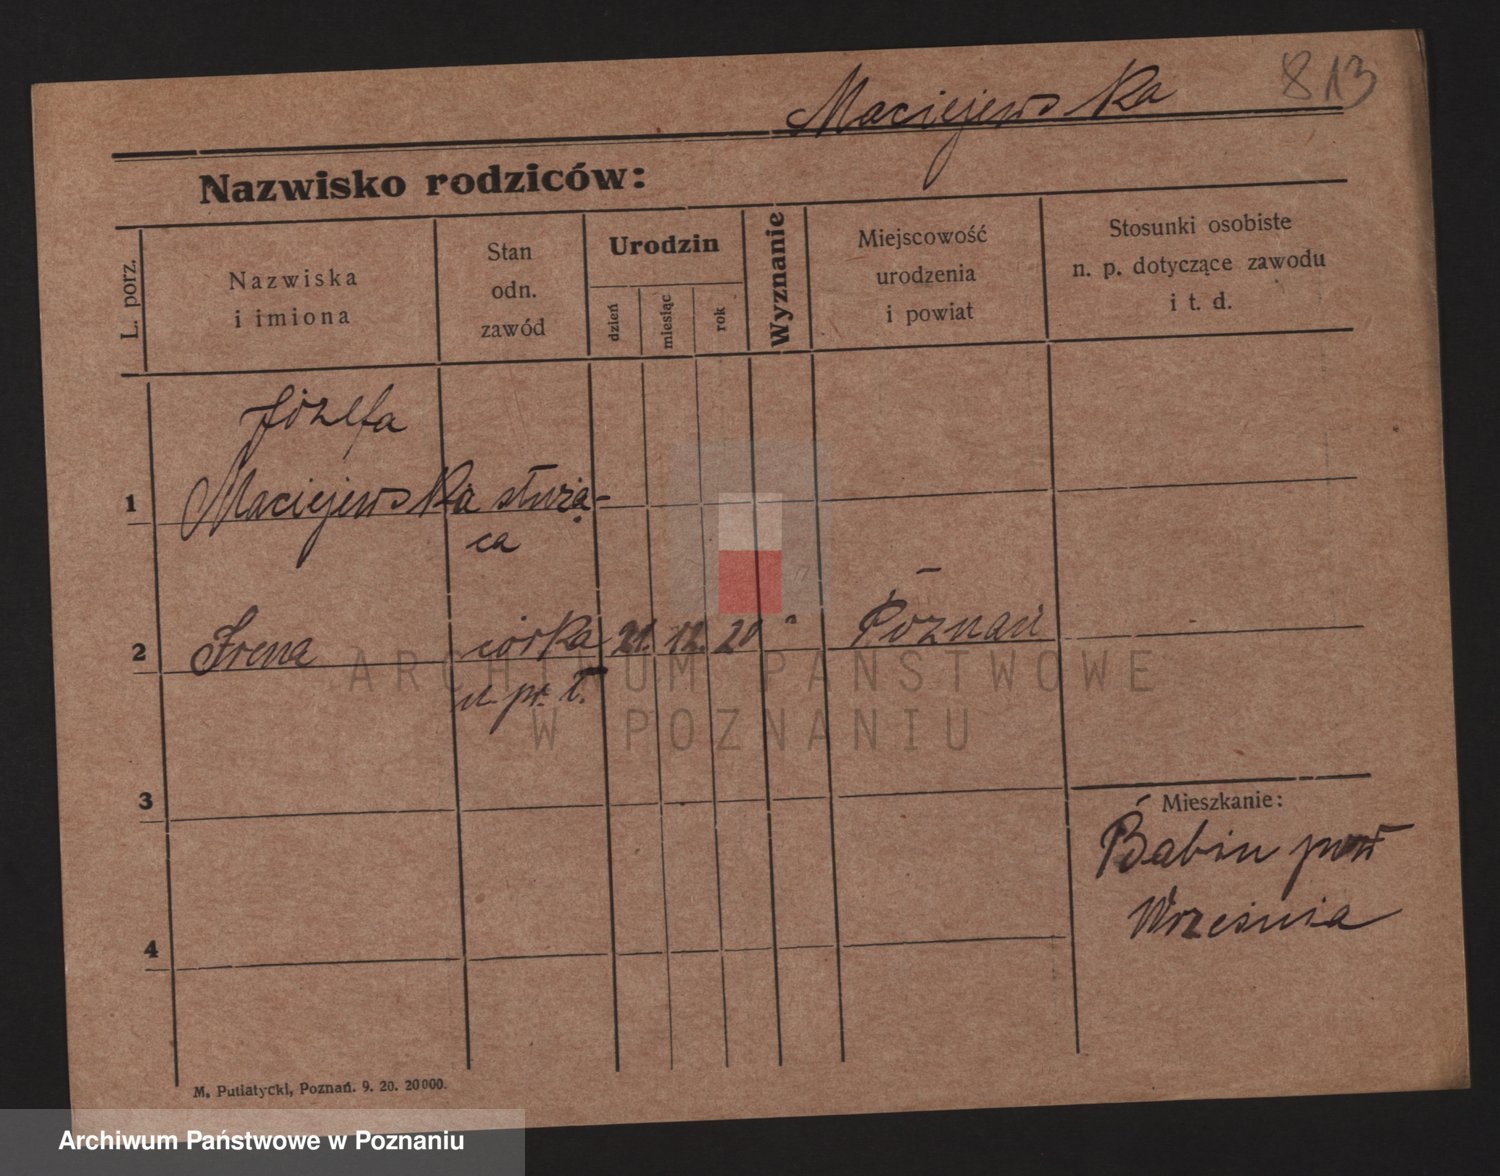 Maciejewska 813
Nazwisko rodziców:
L. porz.
Nazwiska
i imiona
Stan
odn.
zawód
Urodzin
dzień
miesiąc
rok
Wyznanie
Miejscowość
urodzenia
i powiat
Stosunki osobiste
n. p. dotyczące zawodu
i t. d.
Józefa
1 Maciejewska służą-
ca
2 Irena córka 21. 12. 20 " Poznań
n. pr. ł.
ARCHIWUM PAŃSTWOWE
W POZNANIU
3
Mieszkanie:
Babin pow
Września
4
M. Putiatycki, Poznań. 9. 20. 20000.
Archiwum Państwowe w Poznaniu